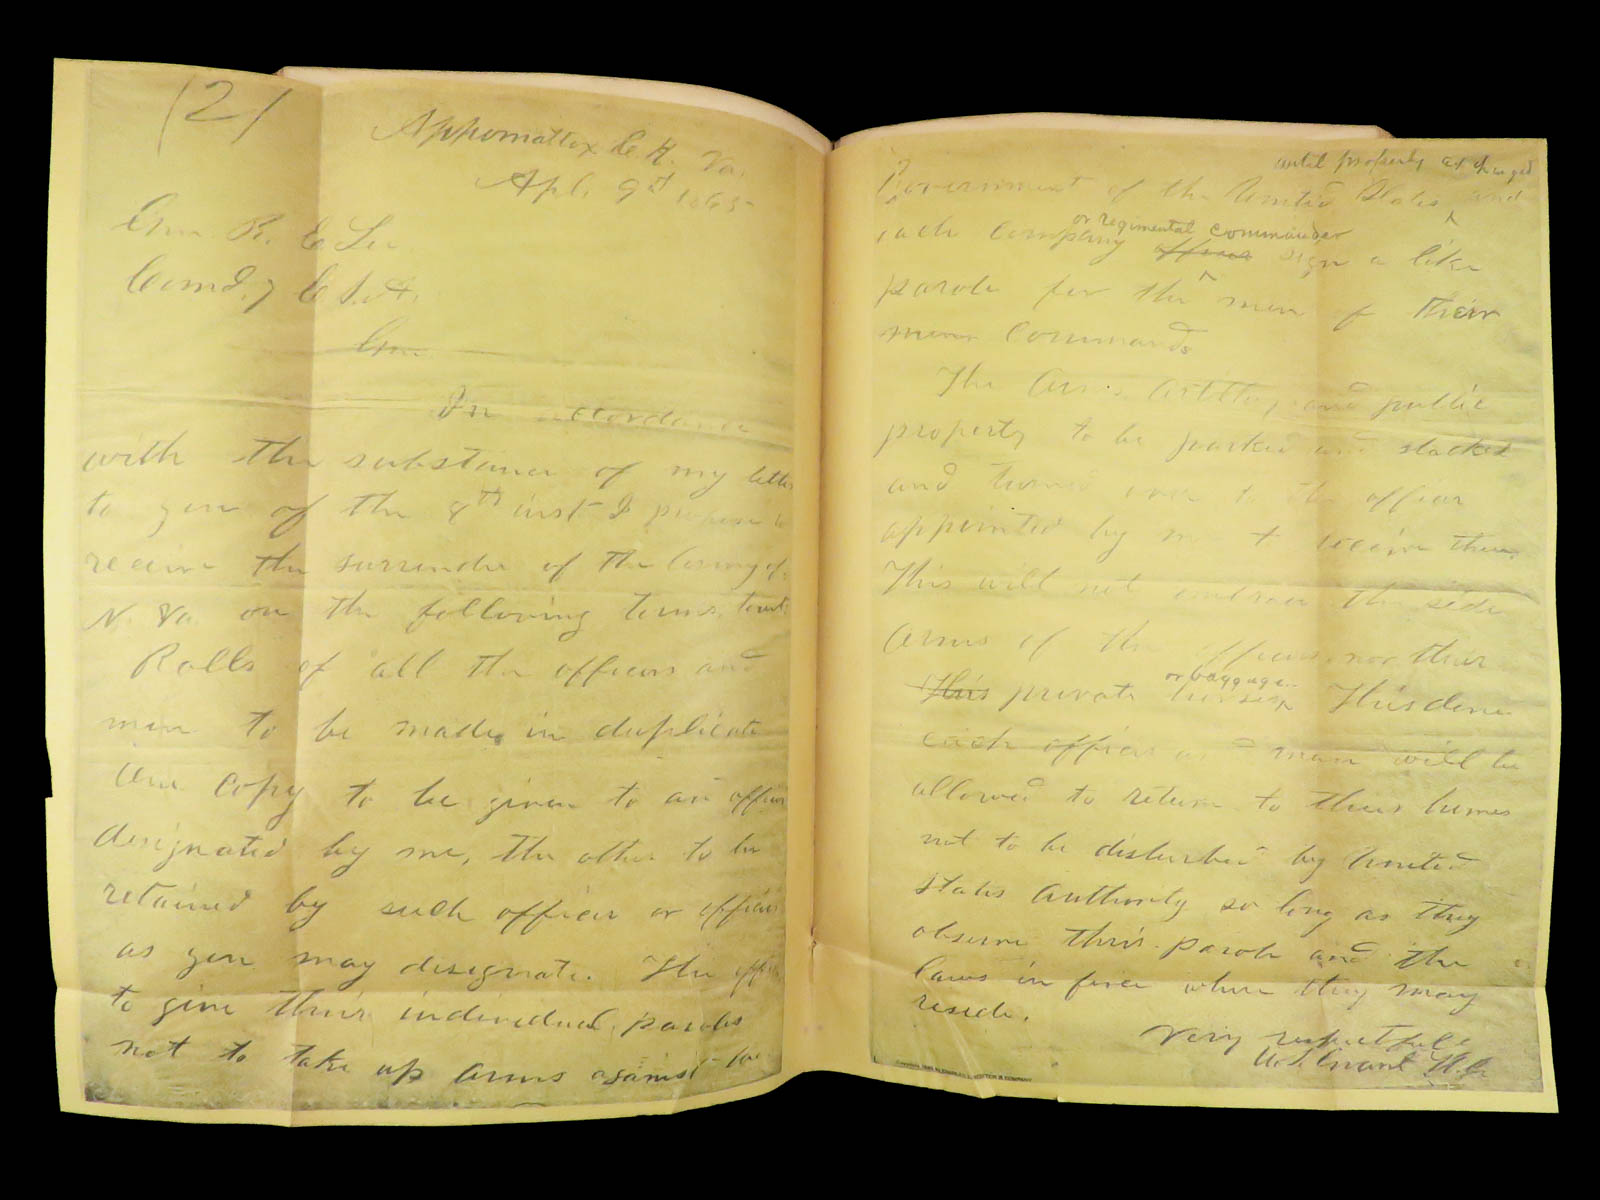 (2)
Appomattox C. H. Va.
Apl. 9th 1865
Gen. R. E. Lee
Comd.g C. S. A.
Gen.
In accordance
with the substance of my letter
to you of the 8th inst. I propose to
receive the surrender of the Army of
N. Va. on the following terms, towit:
Rolls of all the officers and
men to be made in duplicate
One copy to be given to an officer
designated by me, the other to be
retained by such officer or officers
as you may designate. The officers
to give their individual paroles
not to take up arms against the
until properly exchanged
Government of the United States and
or regimental commander
each company officer sign a like
parole for the men of their
commands
The Arms, Artillery and public
property to be parked and stacked
and turned over to the officer
appointed by me to receive them.
This will not embrace the side
Arms of the officers, nor their
or baggage.
This private horses This done
each officer and man will be
allowed to return to their homes
not to be disturbed by United
States Authority so long as they
observe their parole and the
laws in force where they may
reside.
Very respectfully
U. S. Grant Lt. Gn